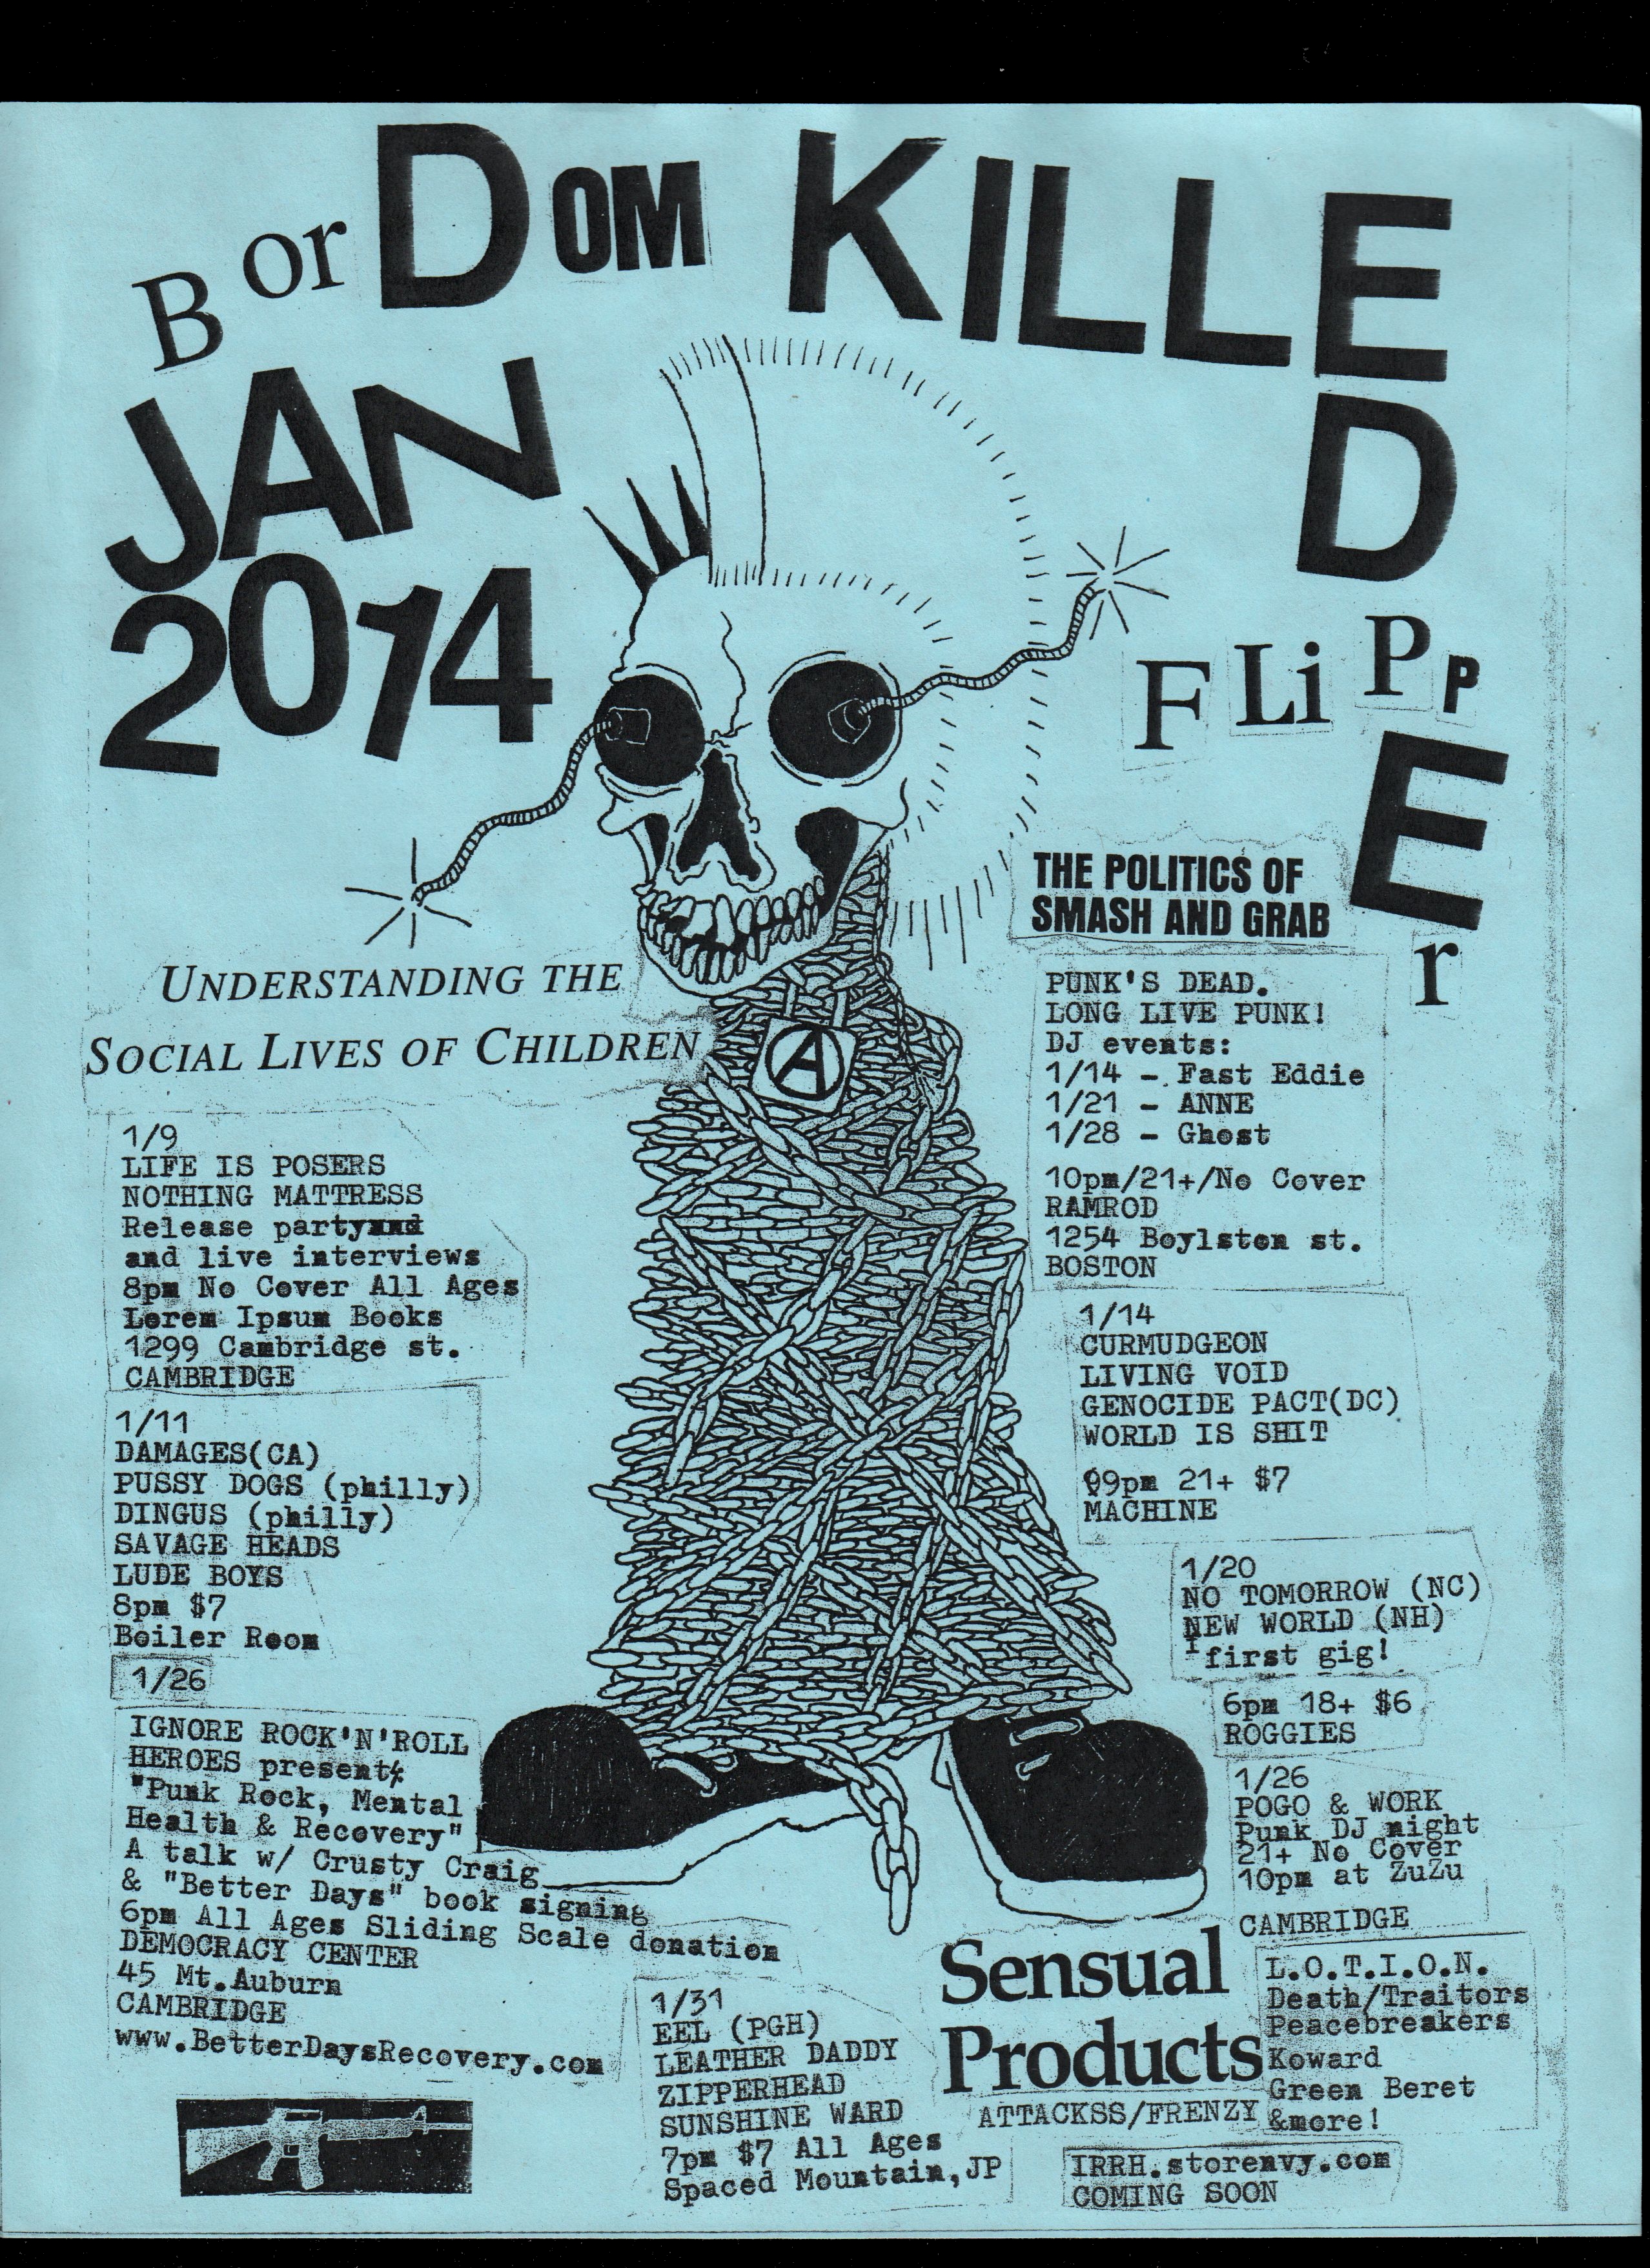 BorDOM KILLED
FLiPPEr
JAN
2014
UNDERSTANDING THE
SOCIAL LIVES OF CHILDREN
1/9
LIFE IS POSERS
NOTHING MATTRESS
Release party
and live interviews
8pm No Cover All Ages
Lorem Ipsum Books
1299 Cambridge st.
CAMBRIDGE
1/11
DAMAGES(CA)
PUSSY DOGS (philly)
DINGUS (philly)
SAVAGE HEADS
LUDE BOYS
8pm $7
Boiler Room
1/26
IGNORE ROCK'N'ROLL
HEROES present
"Punk Rock, Mental
Health & Recovery"
A talk w/ Crusty Craig
& "Better Days" book signing
6pm All Ages Sliding Scale donation
DEMOCRACY CENTER
45 Mt.Auburn
CAMBRIDGE
www.BetterDaysRecovery.com
A
THE POLITICS OF
SMASH AND GRAB
PUNK'S DEAD.
LONG LIVE PUNK!
DJ events:
1/14 - Fast Eddie
1/21 - ANNE
1/28 - Ghost
10pm/21+/No Cover
RAMROD
1254 Boylston st.
BOSTON
1/14
CURMUDGEON
LIVING VOID
GENOCIDE PACT(DC)
WORLD IS SHIT
9pm 21+ $7
MACHINE
1/20
NO TOMORROW (NC)
NEW WORLD (NH)
first gig!
6pm 18+ $6
ROGGIES
1/26
POGO & WORK
Punk DJ night
21+ No Cover
10pm at ZuZu
CAMBRIDGE
1/31
EEL (PGH)
LEATHER DADDY
ZIPPERHEAD
SUNSHINE WARD
7pm $7 All Ages
Spaced Mountain,JP
Sensual
Products
ATTACKSS/FRENZY
L.O.T.I.O.N.
Death/Traitors
Peacebreakers
Koward
Green Beret
&more!
IRRH.storenvy.com
COMING SOON